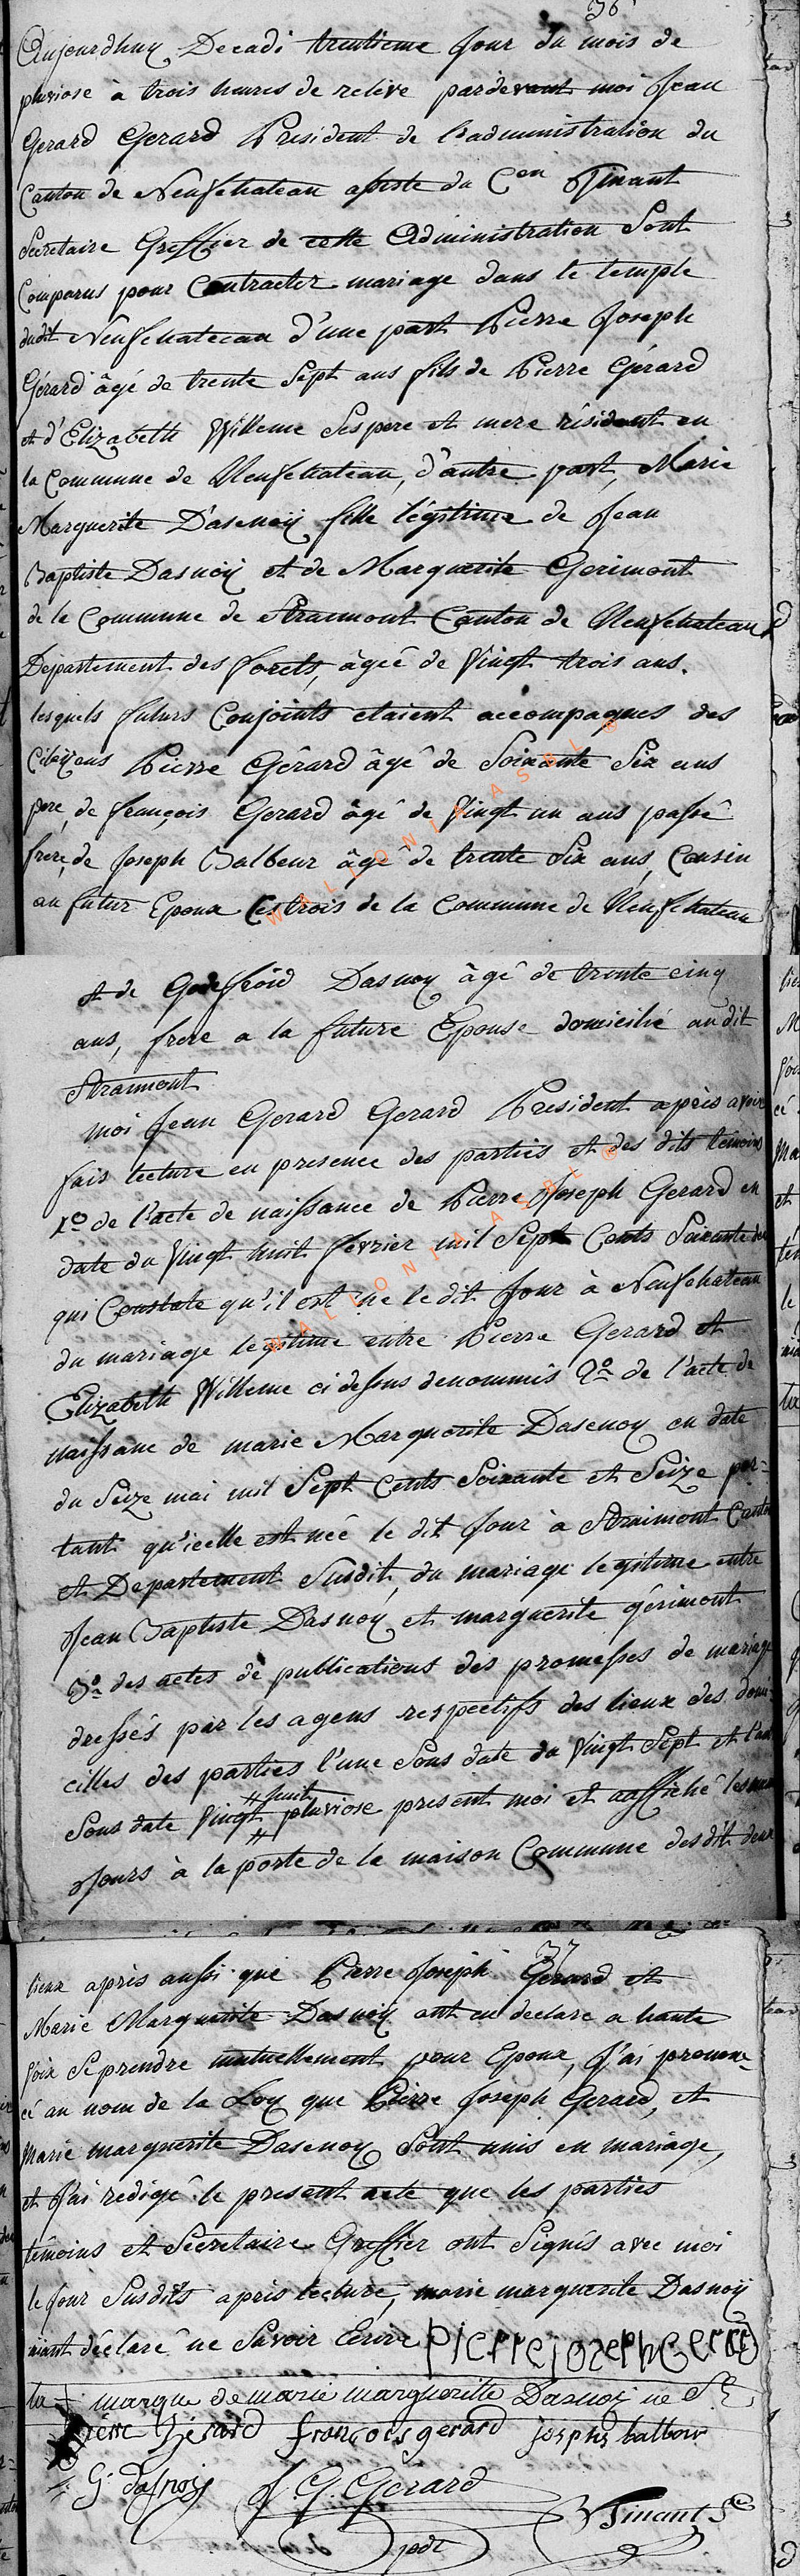 36
Aujourdhuy Decadi trentieme jour du mois de
pluviose à trois heures de relevé pardevant moi Jean
Gerard Gerard President de l'administration du
Canton de Neufchateau assisté du Cen Ninant
Secretaire Greffier de cette Administration Sont
Comparus pour Contracter mariage dans le temple
dudit Neufchateau d'une part Pierre Joseph
Gérard âgé de trente Sept ans fils de Pierre Gérard
et d'Elizabeth Willeme Ses pere et mere résident en
la Commune de Neufchateau, d'autre part, Marie
Marguerite Dasenoÿ fille légitime de Jean
Baptiste Dasnoÿ et de Marguerite Gerimont
de la Commune de Straimont Canton de Neufchateau
Département des forets, âgée de Vingt trois ans.
lesquels futurs Conjoints etaient accompagnés des
Citoyens Pierre Gérard âgé de Soixante Six ans
pere, de françois Gerard âgé de Vingt un ans passé
frere, de Joseph Balbeur âgé de trente Six ans, Cousin
au futur Epoux Les trois de la Commune de Neufchateau
et de Godefroid Dasnoy âgé de trente cinq
ans, frere a la future Epouse domicilié audit
Straimont
moi Jean Gerard Gerard President après avoir
fais lecture en presence des parties et des dits témoins
1o de l'acte de naissance de Pierre Joseph Gerard en
date du Vingt huit fevrier mil Sept Cents Soixante deux
qui Constate qu'il est né ledit Jour à Neufchateau
du mariage legitime entre Pierre Gerard et
Elizabeth Willeme ci dessus denommés 2o de l'acte de
naissance de marie Marguerite Dasenoy en date
du Seize mai mil Sept Cents Soixante et Seize por=
tant qu'icelle est née le dit Jour à Straimont Canton
et Departement Susdit, du mariage legitime entre
Jean Baptiste Dasnoÿ et marguerite gérimont
3o des actes de publications des promesses de mariage
dressés par les agens respectifs des lieux des domi-
cilles des parties l'une Sous date du Vingt Sept et l'autre
Sous date Vingt huit pluviose present moi et aaffiché les mêmes
Jours à la porte de la maison Commune desdit deux
37
lieux après aussi que Pierre Joseph Gerard et
Marie Marguerite Dasnoÿ ont eu declaré a haute
Voix Se prendre mutuellement pour Epoux, J'ai pronon-
cé au nom de la Loy que Pierre Joseph Gerard, et
Marie marguerite Dasenoy Sont unis en mariage,
et J'ai redigé le present acte que les parties
témoins et Secretaire Greffier ont Signés avec moi
le Jour Susdits après lecture, marie marguerite Dasnoÿ
aiant déclaré ne Savoir Ecrire Pierre joseph Gerard
la + marque de marie marguerite Dasnoÿ
pierre Gérard françois gerard joseph balbeur
G. dasnoÿ J. G. Gérard Ninant Sre
pdt
WALLONIA ASBL ®
WALLONIA ASBL ®